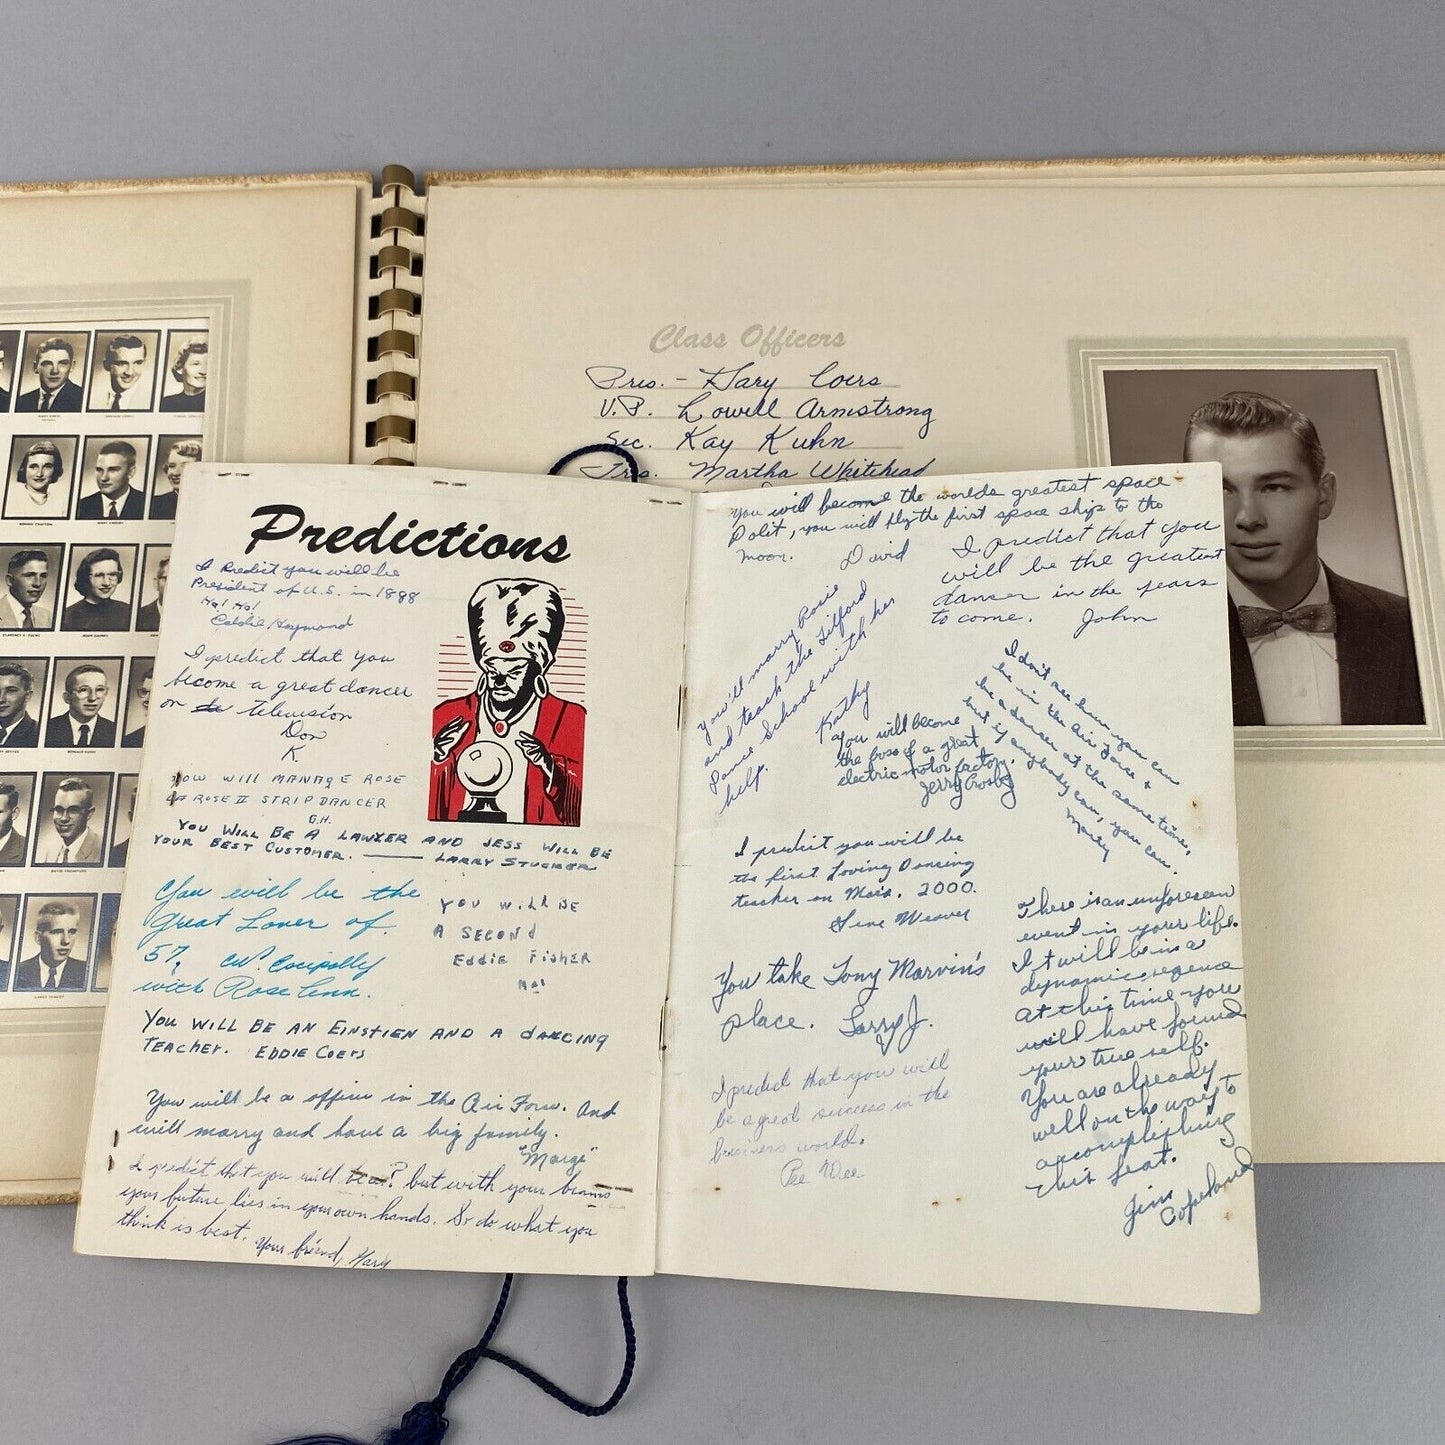 Class Officers
Pres. - Gary Coers
V.P. Lowell Armstrong
Sec. Kay Kuhn
Tres. Martha Whitehead
Predictions
I Predict you will be
President of U.S. in 1888
Ha! Ha!
Eddie Haymond
I predict that you
become a great dancer
on television
Don
K.
YOU WILL MANAGE ROSE
ROSE II STRIP DANCER
G.H.
YOU WILL BE A LAWYER AND JESS WILL BE
YOUR BEST CUSTOMER. LARRY STUCKER
You will be the
great Lover of
57,
with Rose Ann.
YOU WILL BE
A SECOND
Eddie FISHER
Ha!
YOU WILL BE AN EINSTIEN AND A DANCING
TEACHER. EDDIE COERS
You will be a officer in the Air Force. And
will marry and have a big family.
"Marge"
I predict that you will be a ? but with your brains
your future lies in your own hands. So do what you
think is best. Your friend, Gary
You will become the worlds greatest space
Polit, you will fly the first space ship to the
moon. David
I predict that you
will be the greatest
danser in the years
to come. John
you'll marry Rosie
and teach the Tilford
Dance School with her
help. Kathy
You will become
the boss of a great
electric motor factory.
Jerry Crosby
I don't see how you can
be in the Air Force &
be a dancer at the same time,
but if anybody can, you can.
Marty
I predict you will be
the first Loving Dancing
teacher on Mars. 2000.
Gene Weaver
You take Tony Marvin's
place. Larry J.
I predict that you will
be a great success in the
business world.
Pee Wee
There is an unforeseen
event in your life.
It will be in a
dynamic seqence
at this time you
will have found
your true self.
You are already
well on the way to
accomplishing
this feat.
Jim
Copeland